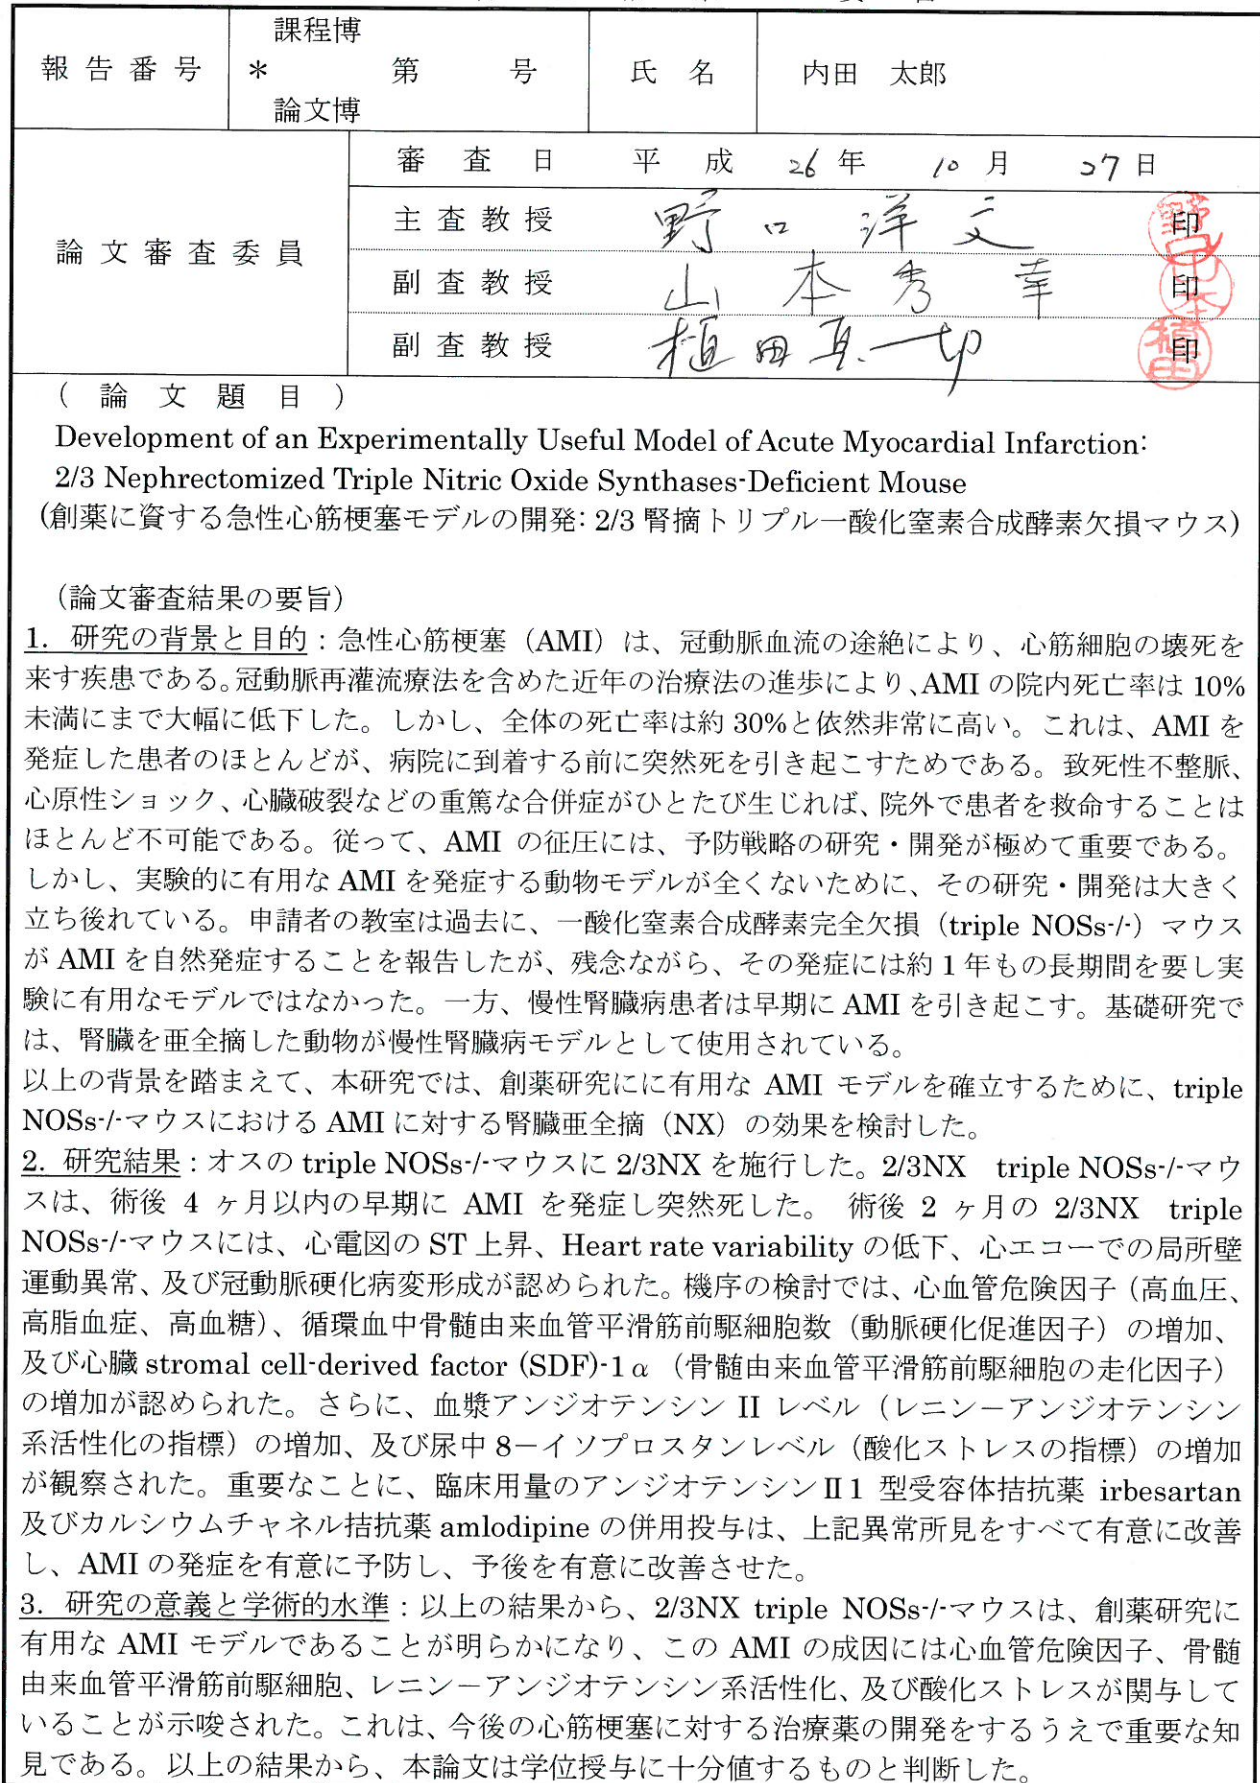 課程博
報告番号 ＊ 第 号 氏名 内田 太郎
論文博
論文審査委員
審査日 平成 26年 10月 27日
主査教授 野口洋文 印
副査教授 山本秀幸 印
副査教授 植田真一郎 印
（論文題目）
Development of an Experimentally Useful Model of Acute Myocardial Infarction:
2/3 Nephrectomized Triple Nitric Oxide Synthases-Deficient Mouse
(創薬に資する急性心筋梗塞モデルの開発: 2/3 腎摘トリプル一酸化窒素合成酵素欠損マウス)
（論文審査結果の要旨）
1. 研究の背景と目的：急性心筋梗塞（AMI）は、冠動脈血流の途絶により、心筋細胞の壊死を
来す疾患である。冠動脈再灌流療法を含めた近年の治療法の進歩により、AMI の院内死亡率は 10%
未満にまで大幅に低下した。しかし、全体の死亡率は約 30%と依然非常に高い。これは、AMI を
発症した患者のほとんどが、病院に到着する前に突然死を引き起こすためである。致死性不整脈、
心原性ショック、心臓破裂などの重篤な合併症がひとたび生じれば、院外で患者を救命することは
ほとんど不可能である。従って、AMI の征圧には、予防戦略の研究・開発が極めて重要である。
しかし、実験的に有用な AMI を発症する動物モデルが全くないために、その研究・開発は大きく
立ち後れている。申請者の教室は過去に、一酸化窒素合成酵素完全欠損（triple NOSs-/-）マウス
が AMI を自然発症することを報告したが、残念ながら、その発症には約 1 年もの長期間を要し実
験に有用なモデルではなかった。一方、慢性腎臓病患者は早期に AMI を引き起こす。基礎研究で
は、腎臓を亜全摘した動物が慢性腎臓病モデルとして使用されている。
以上の背景を踏まえて、本研究では、創薬研究にに有用な AMI モデルを確立するために、triple
NOSs-/-マウスにおける AMI に対する腎臓亜全摘（NX）の効果を検討した。
2. 研究結果：オスの triple NOSs-/-マウスに 2/3NX を施行した。2/3NX triple NOSs-/-マウ
スは、術後 4 ヶ月以内の早期に AMI を発症し突然死した。 術後 2 ヶ月の 2/3NX triple
NOSs-/-マウスには、心電図の ST 上昇、Heart rate variability の低下、心エコーでの局所壁
運動異常、及び冠動脈硬化病変形成が認められた。機序の検討では、心血管危険因子（高血圧、
高脂血症、高血糖）、循環血中骨髄由来血管平滑筋前駆細胞数（動脈硬化促進因子）の増加、
及び心臓 stromal cell-derived factor (SDF)-1α（骨髄由来血管平滑筋前駆細胞の走化因子）
の増加が認められた。さらに、血漿アンジオテンシン II レベル（レニン－アンジオテンシン
系活性化の指標）の増加、及び尿中 8－イソプロスタンレベル（酸化ストレスの指標）の増加
が観察された。重要なことに、臨床用量のアンジオテンシンⅡ1 型受容体拮抗薬 irbesartan
及びカルシウムチャネル拮抗薬 amlodipine の併用投与は、上記異常所見をすべて有意に改善
し、AMI の発症を有意に予防し、予後を有意に改善させた。
3. 研究の意義と学術的水準：以上の結果から、2/3NX triple NOSs-/-マウスは、創薬研究に
有用な AMI モデルであることが明らかになり、この AMI の成因には心血管危険因子、骨髄
由来血管平滑筋前駆細胞、レニン－アンジオテンシン系活性化、及び酸化ストレスが関与して
いることが示唆された。これは、今後の心筋梗塞に対する治療薬の開発をするうえで重要な知
見である。以上の結果から、本論文は学位授与に十分値するものと判断した。